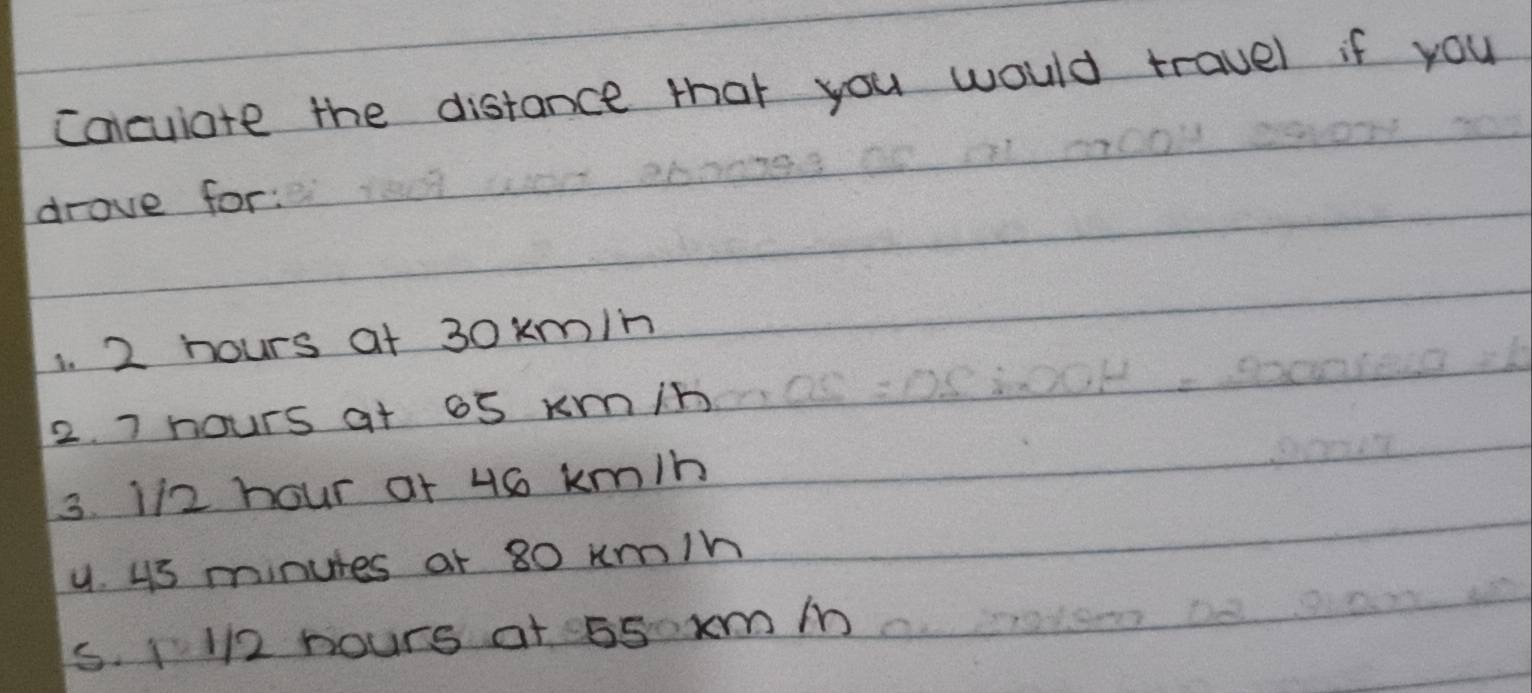 Calculate the distance that you would travel if you
drove for:
1. 2 hours at 30 km/h
2. 7 hours at 65 km/h
3. 1/2 hour at 46 km/h
4. 45 minutes at 80 km/h
5. 1 1/2 hours at 55 km/h